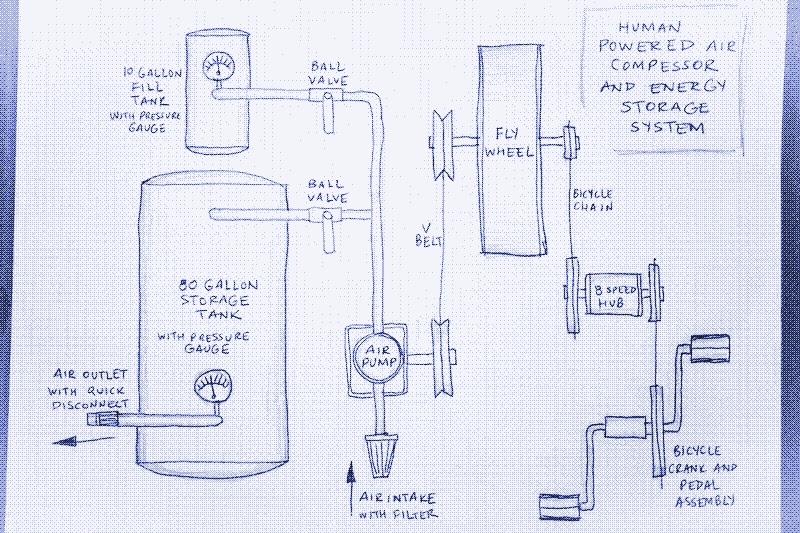 HUMAN
POWERED AIR
COMPESSOR
AND ENERGY
STORAGE
SYSTEM
10 GALLON
FILL
TANK
WITH PRESSURE
GAUGE
BALL
VALVE
FLY
WHEEL
BICYCLE
CHAIN
BALL
VALVE
V
BELT
80 GALLON
STORAGE
TANK
WITH PRESSURE
GAUGE
8 SPEED
HUB
AIR
PUMP
AIR OUTLET
WITH QUICK
DISCONNECT
BICYCLE
CRANK AND
PEDAL
ASSEMBLY
AIR INTAKE
WITH FILTER